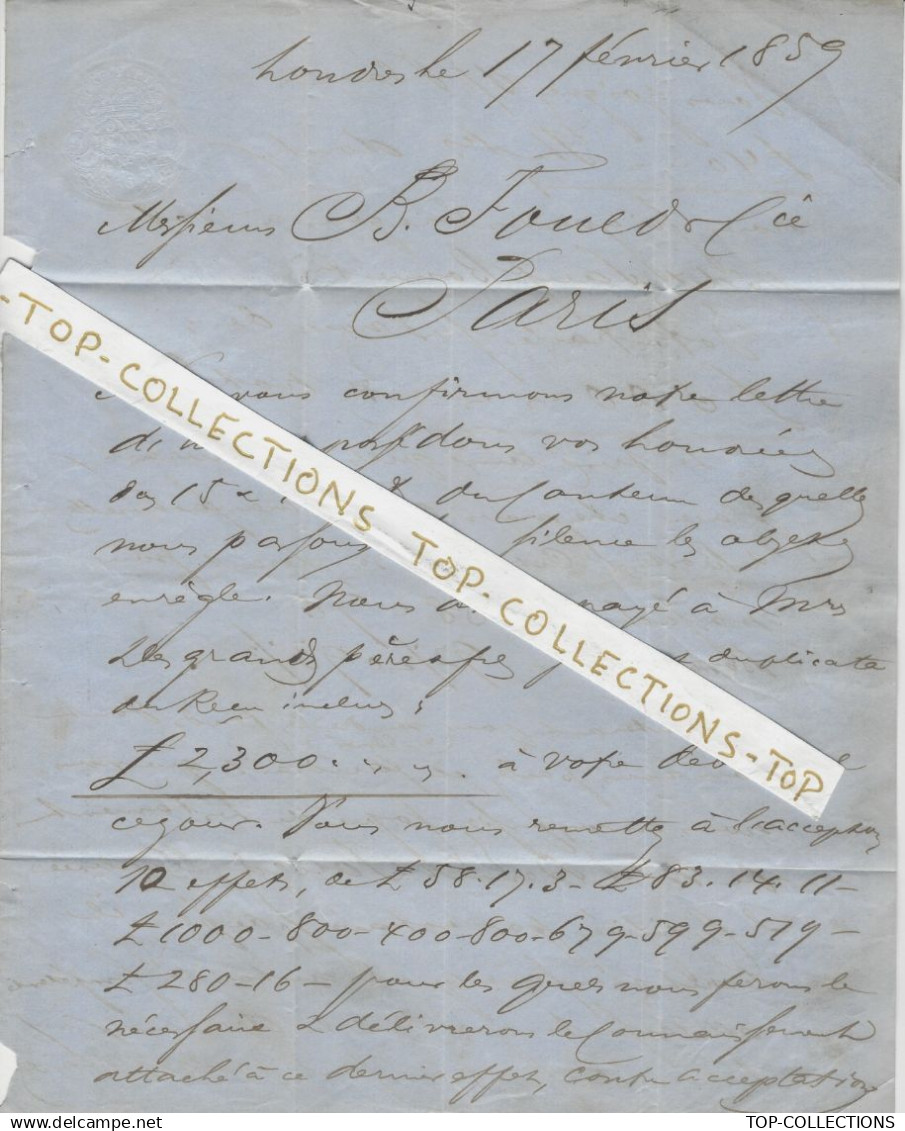 Londres le 17 février 1859
Messieurs B. Foued & Cie
Paris
vous confirmons notre lettre
dans vos honorées
des 15 & du contenu desquelles
nous passons silence les objets
en règle. Nous payé à Mrs
Legrand père & fils duplicata
du Reçu inclus;
£ 2,300. " " . à votre
ce jour. Vous nous remettez à l'acceptation
10 effets, de £ 58.17.3 - £ 83.14.11 -
£ 1000 - 800 - 400 - 800 - 679 - 599 - 519 -
£ 280 - 16 - pour les quels nous ferons le
nécessaire & délivrerons le Connaissement
attaché à ce dernier effet, contre acceptation
- TOP - COLLECTIONS TOP - COLLECTIONS - TOP
TOP-COLLECTIONS